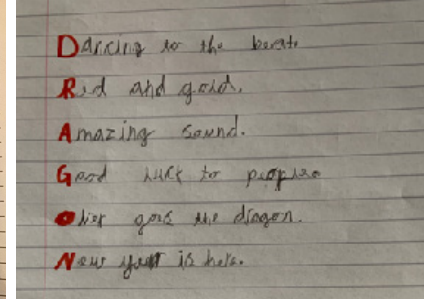 Dancing to the beat.
Red and gold.
Amazing sound.
Good luck to people
goes the dragon.
New year is here.